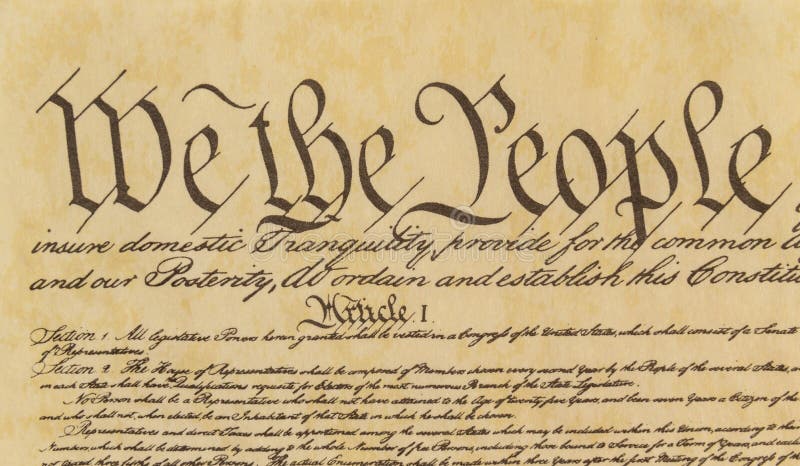 We the People
insure domestic Tranquility, provide for the common
and our Posterity, do ordain and establish this Constitu
Article I.
Section 1. All legislative Powers herein granted shall be vested in a Congress of the United States, which shall consist of a Senate
of Representatives.
Section 2. The House of Representatives shall be composed of Members chosen every second Year by the People of the several States, a
in each State shall have Qualifications requisite for Electors of the most numerous Branch of the State Legislature.
No Person shall be a Representative who shall not have attained to the Age of twenty five Years, and been seven Years a Citizen of the
and who shall not, when elected, be an Inhabitant of that State in which he shall be chosen.
Representatives and direct Taxes shall be apportioned among the several States which may be included within this Union, according to their
Numbers, which shall be determined by adding to the whole Number of free Persons, including those bound to Service for a Term of Years, and exclud
not taxed, three fifths of all other Persons. The actual Enumeration shall be made within three Years after the first Meeting of the Congress of th
dreamstime